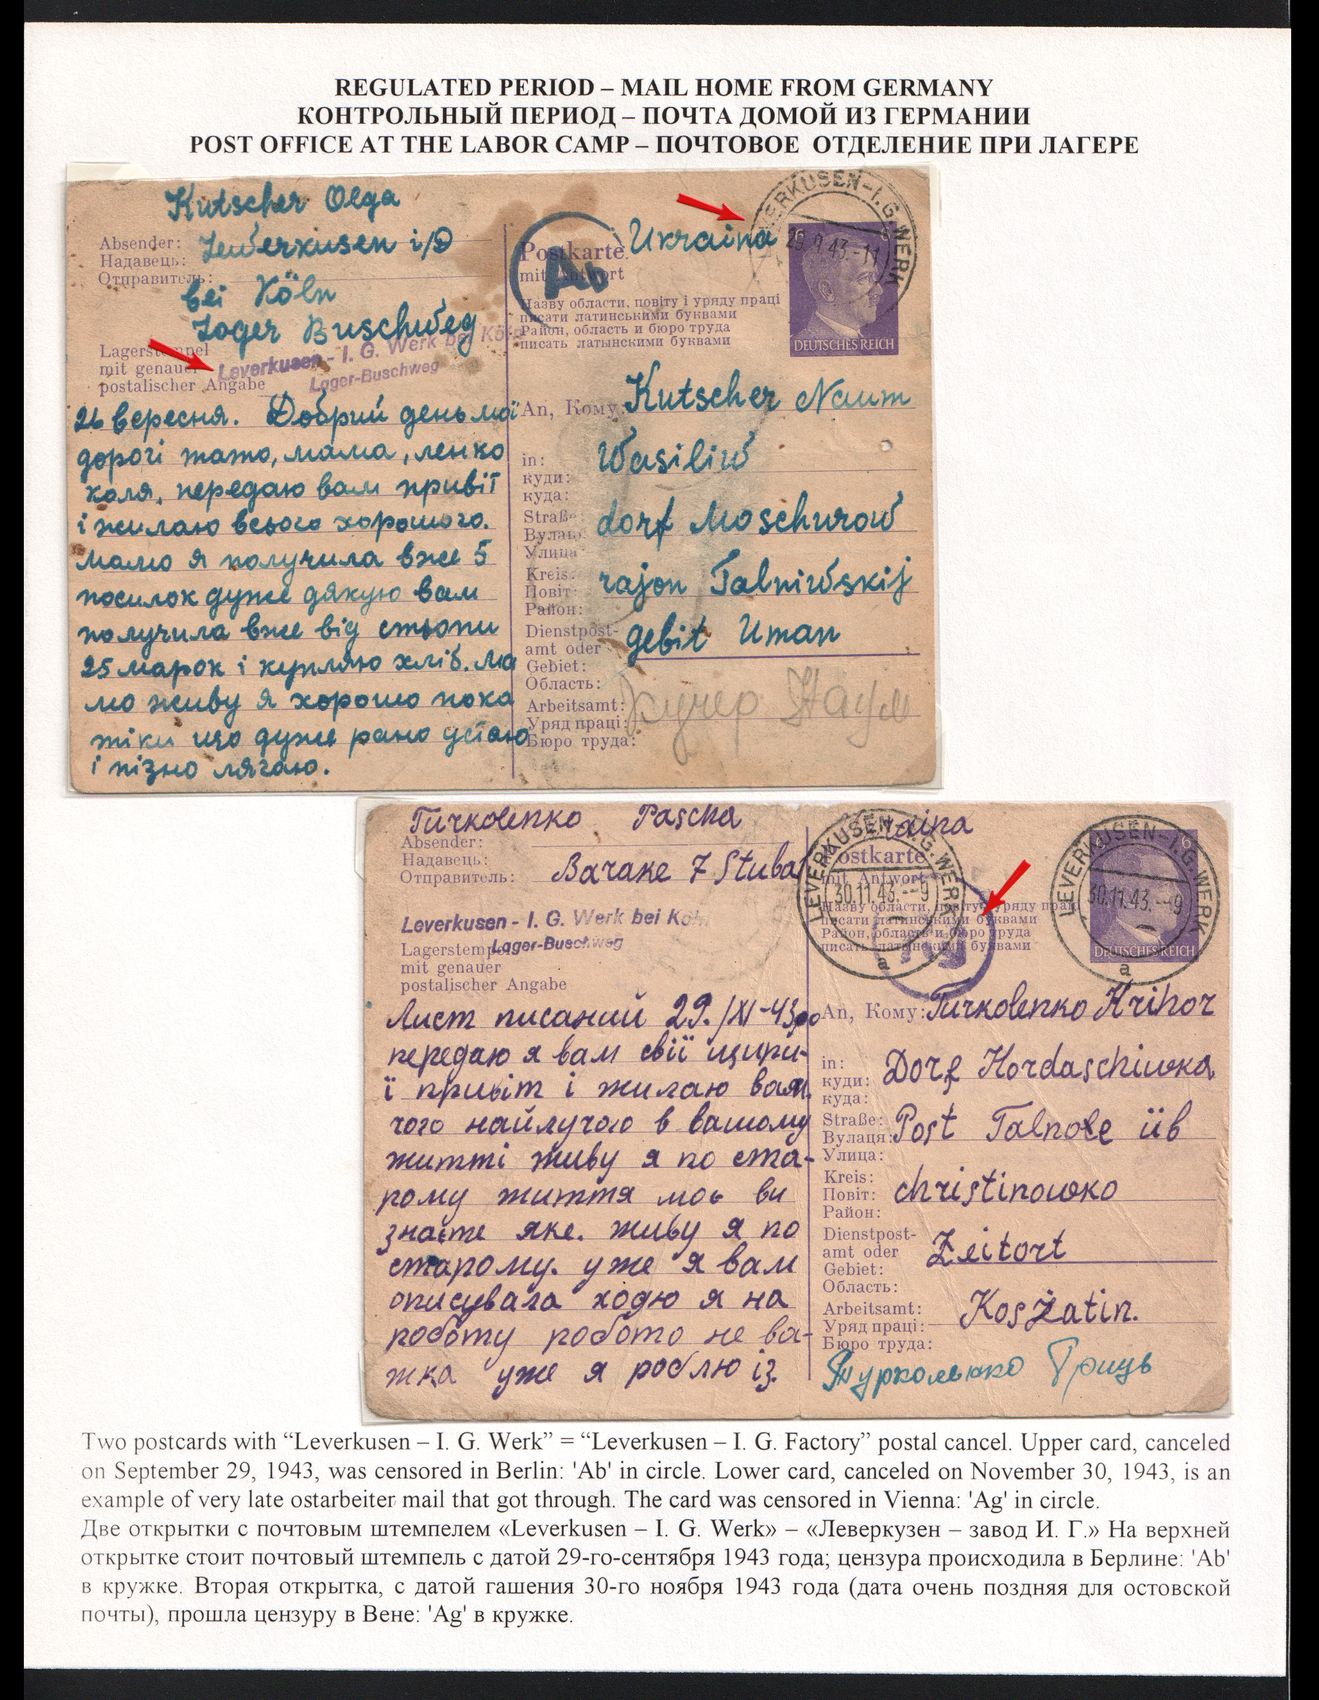 REGULATED PERIOD – MAIL HOME FROM GERMANY
КОНТРОЛЬНЫЙ ПЕРИОД – ПОЧТА ДОМОЙ ИЗ ГЕРМАНИИ
POST OFFICE AT THE LABOR CAMP – ПОЧТОВОЕ ОТДЕЛЕНИЕ ПРИ ЛАГЕРЕ
Kutscher Olga
Absender:
Надавець:
Отправитель:
Leverkusen i/D
bei Köln
Lager Buschweg
Lagerstempel
mit genauer
postalischer Angabe
Leverkusen - I. G. Werk bei Köln
Lager-Buschweg
26 вересня. Добрий день мої
дорогі тато, мама, ленко
коля, передаю вам привіт
і жилаю всього хорошого.
мамо я получила вже 5
посилок дуже дякую вам
получила вже від стьопи
25 марок і купляю хліб. ма
мо живу я хорошо пока
тіки що дуже рано устаю
і пізно лягаю.
Postkarte
mit Antwort
Ab
Ukraina
LEVERKUSEN-I.G. WERK
29.9.43.-11
DEUTSCHES REICH
Назву области, повіту і уряду праці
писати латинськими буквами
Район, область и бюро труда
писать латынскими буквами
An, Кому: Kutscher Naum
in:
куди:
куда:
Wasiliw
Straße:
Вулаця:
Улица:
dorf Moschurow
Kreis:
Повіт:
Район:
rajon Talniwskij
Dienstpost-
amt oder
Gebiet:
Область:
gebit Uman
Arbeitsamt:
Уряд праці:
Бюро труда:
Кучер Наум
Turkolenko Pascha
Absender:
Надавець:
Отправитель:
Barake 7 Stuba
Leverkusen - I. G. Werk bei Köln
Lager-Buschweg
Lagerstempel
mit genauer
postalischer Angabe
Лист писаний 29./XI-43ро
передаю я вам свії щири-
ї привіт і жилаю вам
чого найлучого в вашому
житті живу я по ста-
рому життя моє ви
знаєте яке. живу я по
старому. уже я вам
описувала ходю я на
роботу робото не ва-
жка уже я роблю із
Ukraina
Postkarte
mit Antwort
LEVERKUSEN-I.G. WERK
30.11.43.--9
a
LEVERKUSEN-I.G. WERK
30.11.43.--9
a
DEUTSCHES REICH
Назву области, повіту і уряду праці
писати латинськими буквами
Район, область и бюро труда
писать латынскими буквами
An, Кому: Turkolenko Hrihor
in:
куди:
куда:
Dorf Hordaschiwka
Straße:
Вулаця:
Улица:
Post Talnoje üb
Kreis:
Повіт:
Район:
christinowko
Dienstpost-
amt oder
Gebiet:
Область:
Zeitort
Arbeitsamt:
Уряд праці:
Бюро труда:
Koszatin.
Турколенко Гриць
Two postcards with “Leverkusen – I. G. Werk” = “Leverkusen – I. G. Factory” postal cancel. Upper card, canceled
on September 29, 1943, was censored in Berlin: 'Ab' in circle. Lower card, canceled on November 30, 1943, is an
example of very late ostarbeiter mail that got through. The card was censored in Vienna: 'Ag' in circle.
Две открытки с почтовым штемпелем «Leverkusen – I. G. Werk» – «Леверкузен – завод И. Г.» На верхней
открытке стоит почтовый штемпель с датой 29-го-сентября 1943 года; цензура происходила в Берлине: 'Ab'
в кружке. Вторая открытка, с датой гашения 30-го ноября 1943 года (дата очень поздняя для остовской
почты), прошла цензуру в Вене: 'Ag' в кружке.